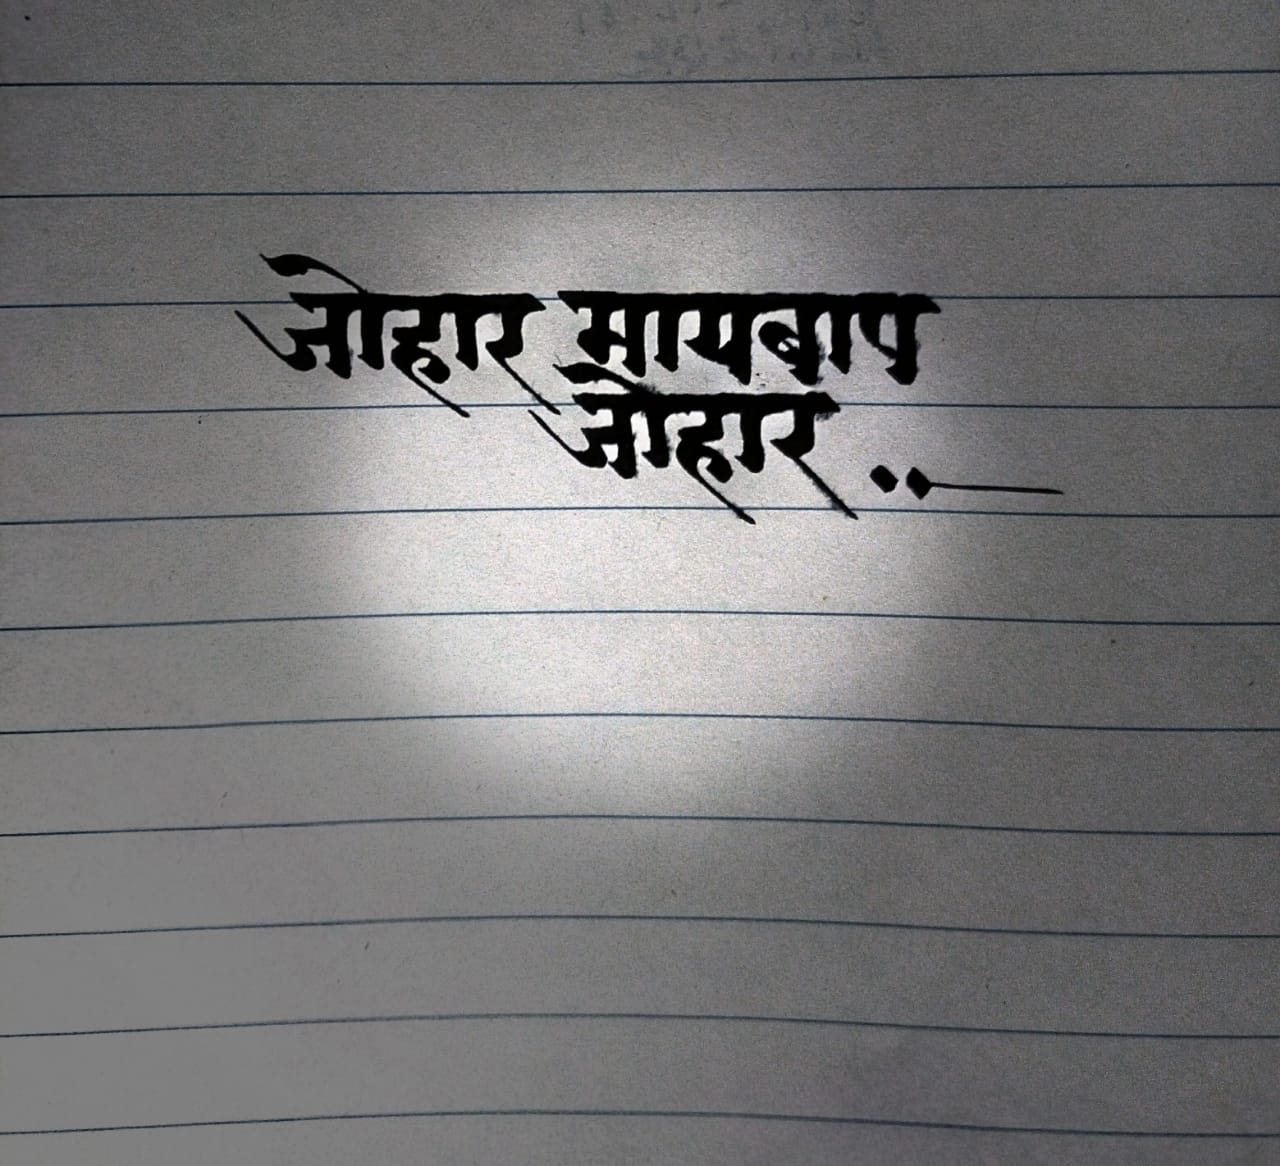 जोहार मायबाप
जोहार..